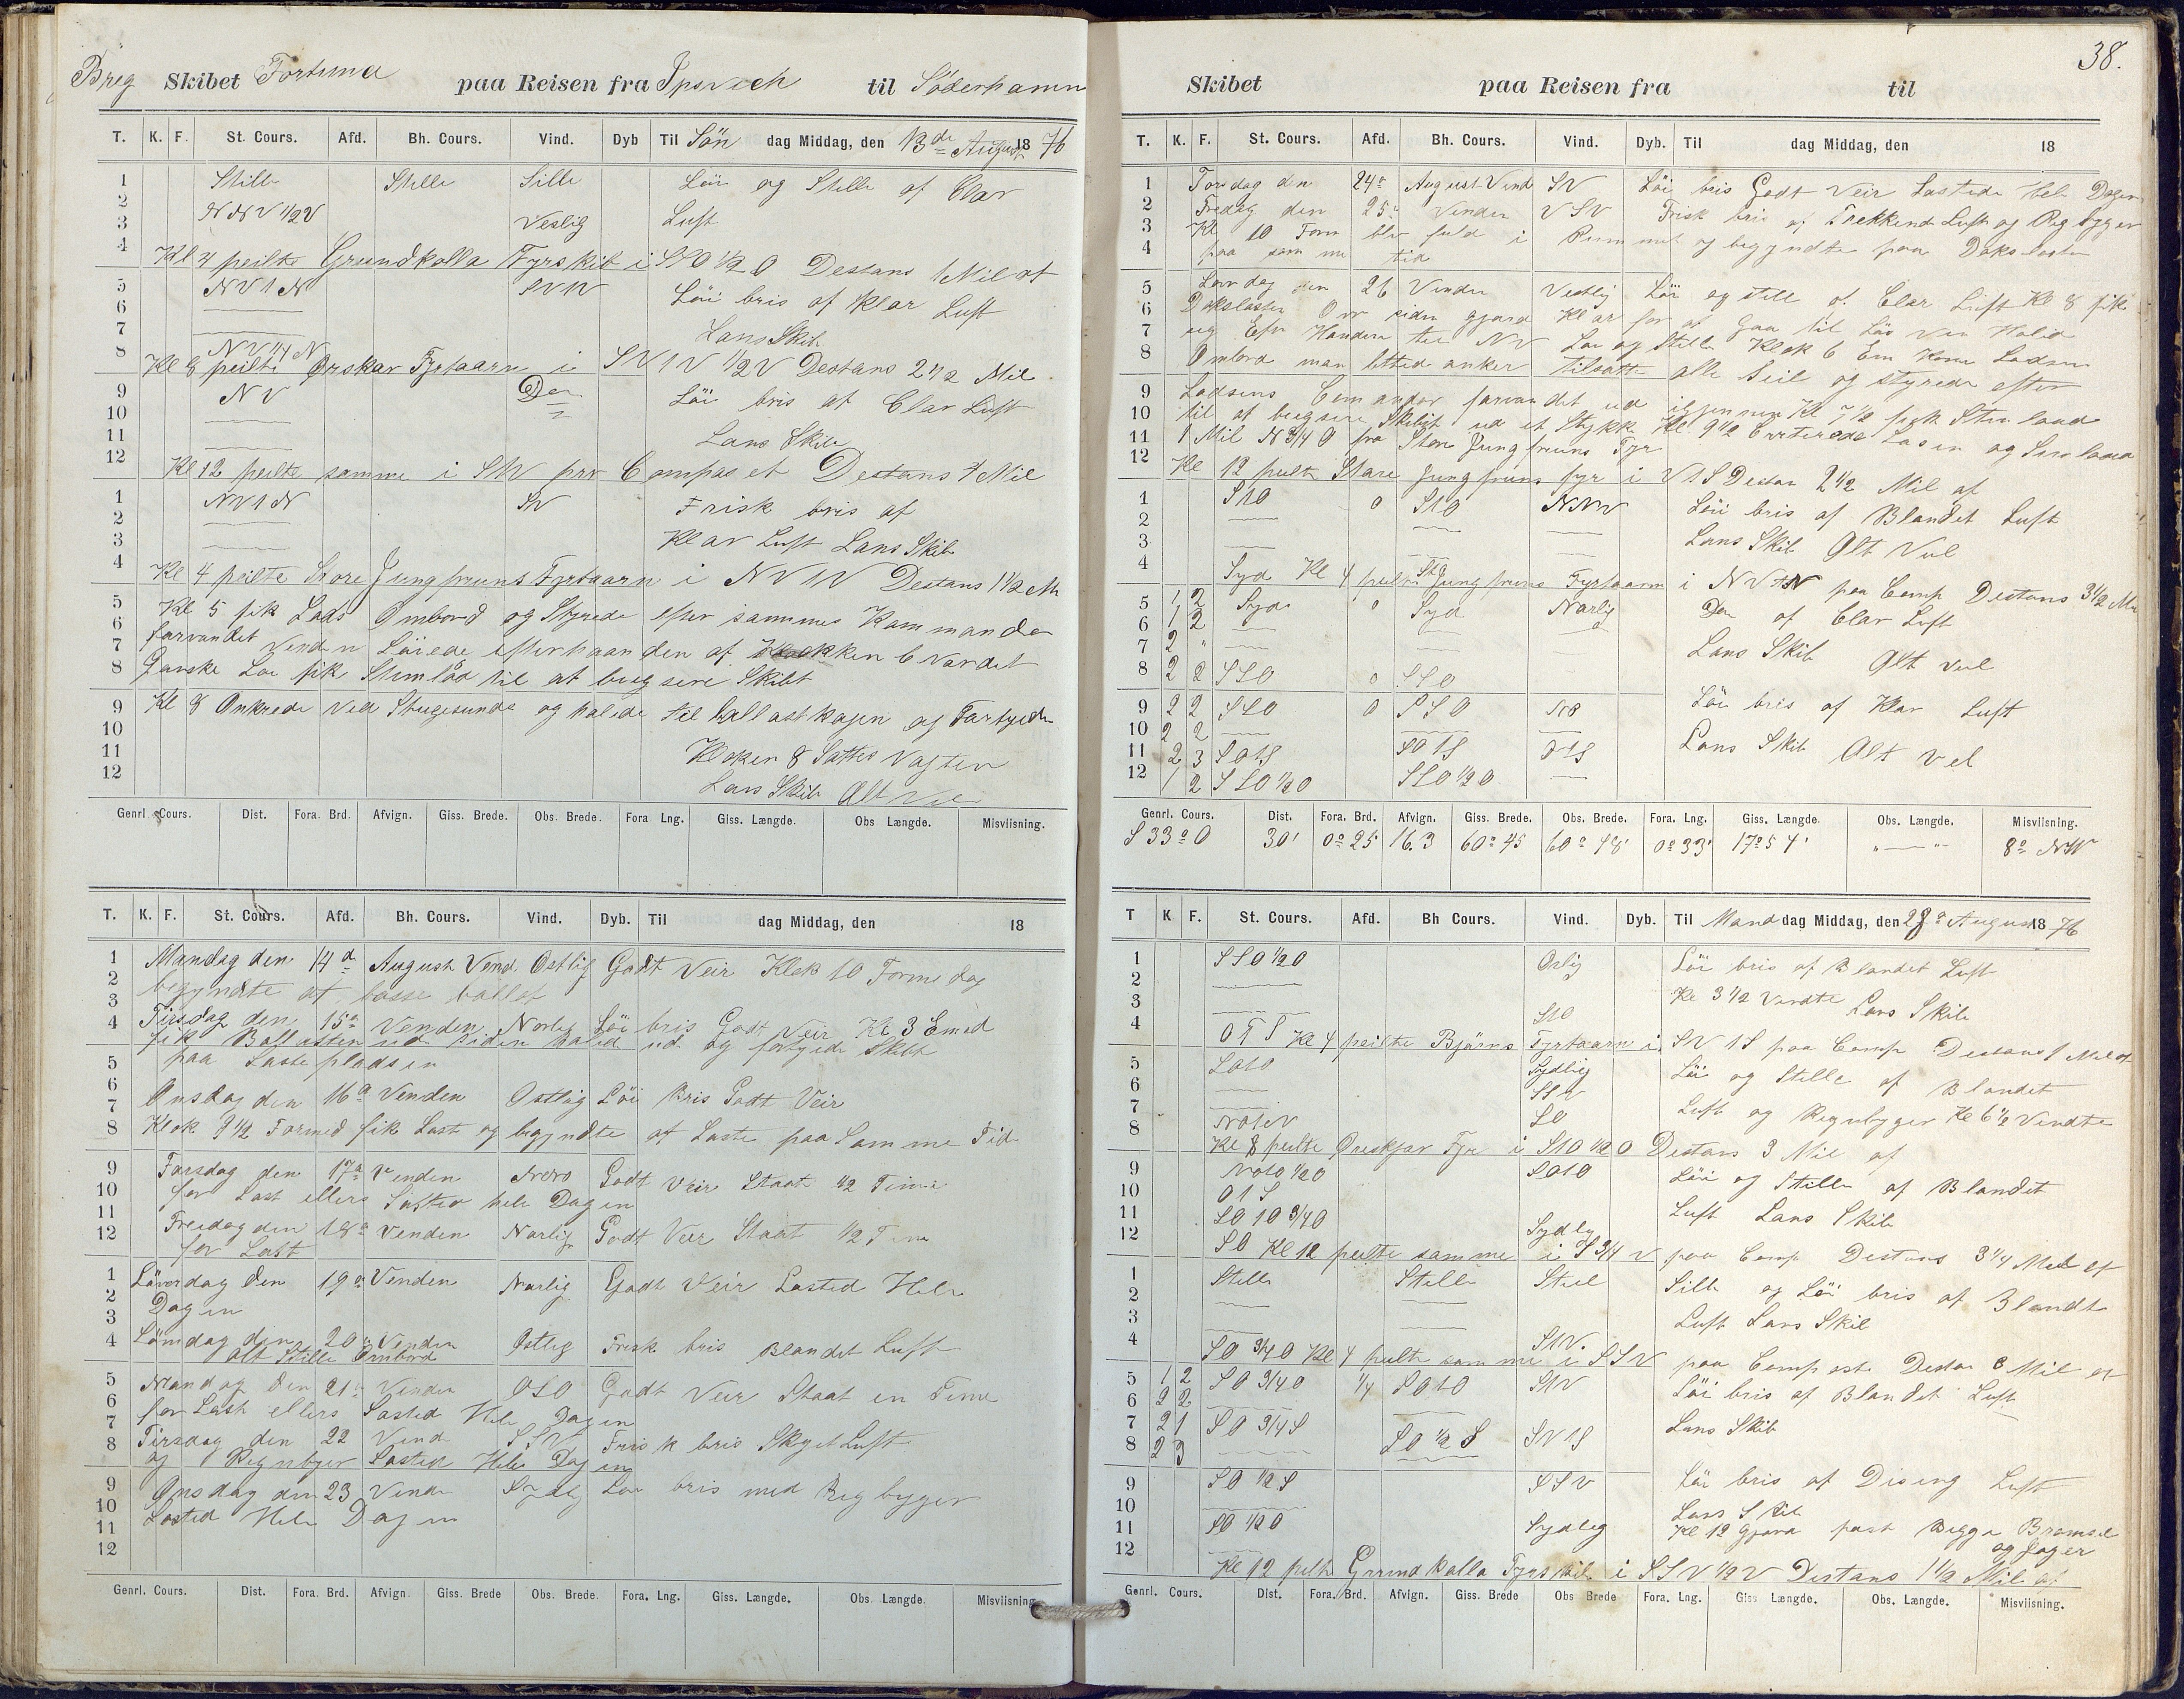 Breg Skibet Fortuna paa Reisen fra Ipsvich til Söderhamn
T. K. F. St. Cours. Afd. Bh. Cours. Vind. Dyb Til Sön dag Middag, den 13de August 18 76
1 Stille Stille Stille Löi og Stille af Clar
2 NNV 1/2 V Vestlig Luft
3
4 Kl 4 peilte Grundkalla Fyrskib i SSO 1/2 O Destans 1 Mil af
5 NV 1 N Löi bris af klar Luft
6
7 Lans Skib
8 NV 1/4 N
Kl 8 peilte Ørskar Fyrtaarn i SV 1 V 1/2 V Destans 2 1/2 Mil
9 NV Do Löi bris af Clar Luft
10
11 Lans Skib
12 Kl 12 peilte samme i prv Compaset Destans 4 Mil
1 NV 1 N SV Frisk bris af
2
3 Klar Luft Lans Skib
4 Kl 4 peilte Store Jungfruns Fyrtaarn i NV 1 V Destans 1 1/2 M
5 Kl 5 fik Lods Ombord og Styrede efter sammes Kammando
6 farvandet Vinden Löiede efterhaanden af Klokken 6 Vardet
7 Ganske Löi fik Stimlåd til at bugsere Skibt
8
9 Kl 8 Ankrede ved Stugesunds og halede til ballastkagen og Fartyede
10
11 Kloken 8 Sattes Vagten
12 Lans Skib Alt Vel
Genrl. Cours. Dist. Fora. Brd. Afvign. Giss. Brede. Obs. Brede. Fora Lng. Giss. Længde. Obs. Længde. Misviisning.
T. K. F. St. Cours. Afd. Bh. Cours. Vind. Dyb. Til dag Middag, den 18
1 Mandag den 14d August Vend Ostlig Godt Veir Klok 10 Formedag
2 begyndte at losse ballast
3 Tirsdag den 15d Venden Norlig Löi bris Godt Veir Kl 3 Emed
4 fik Ballasten ud siden halede ud og fortyede Skibt
5 paa Lastepladsen
6 Onsdag den 16d Venden Ostlig Löi Bris Godt Veir
7
8 Klok 9 1/2 Formed fik Last og begyndte at Laste paa Samme Tid
9 Tarsdag den 17d Venden Godt Veir Staat 1/2 Time
10 for Last ellers Lasted hele Dagen
11 Freidag den 18d Venden Norlig Godt Veir Staat 1/2 Time
12 for Last
1 Löverdag den 19d Venden Norlig Godt Veir Lasted Hele
2 Dagen
3
4 Söndag den 20d Venden Ostlig Frisk bris Blandet Luft
Alt Stille Ombord
5 Mandag den 21d Venden OSO Godt Veir Staat en Time
6 for Last ellers Lasted Hele Dagen
7 Tirsdag den 22 Vend SSV Frisk bris Skyet Luft
8 og Regnbyer Lasted Hele Dagen
9 Onsdag den 23 Vende Sydlig Löi bris med Regbyger
10 Lasted Hele Dagen
11
12
Genrl. Cours. Dist. Fora. Brd. Afvign. Giss. Brede Obs. Brede. Fora. Lng. Giss. Længde. Obs. Længde. Misviisning.
38.
Skibet paa Reisen fra til
T. K. F. St. Cours. Afd. Bh. Cours. Vind. Dyb. Til dag Middag, den 18
1 Torsdag den 24d August Vend SV Löi bris Godt Veir Lastede hele Dagen
2 Fredag den 25d Venden VSV Frisk bris af Trekkende Luft og Regbyger
3 Kl 10 Form blev fuld i Rummet og begyndte paa Dækslasten
4 paa samme tid
5 Lövdag den 26 Venden Vestlig Löi og stille af Clar Luft Kl 8 fik
6 Dækslasten Ovr siden gjord Klar for at gaa til
7 Efter Handen til NV Löi og Stille Klok 6 Em Kom Lodsen
8 Ombord man lettede anker tilsatte alle Seil og styrede efter
9 Lodsens Comandor farvandet ud igjennem Kl 7 1/2 fick Stimlaad
10 til at bugsere Skibet ud et Stykke Kl 9 1/2 Losen og Simlaad
11 1 Mil N 3/4 O fra Store Jungfruns Fyr
12 Kl 12 peilte Store Jungfruns fyr i V 1 S Destan 2 1/2 Mil af
1 S 1 O 0 S 1 O NNV Löi bris af Blandet Luft
2
3 Lans Skib Alt Vel
4 Syd Kl 4 peilte Sto Jungfruns Fyrtaarn i NV 1 N paa Comp Destans 3 1/2 Mi
5 1 2 Syd 0 Syd Norlig Do af Clar Luft
6 1 2
7 2 " Lans Skib Alt vel
8 2 2 SSO 0 SSO
9 2 2 SSO 0 SSO Löi bris af Klar Luft
10 2 2
11 2 3 SO 1 S SO 1 S O 1 S Lans Skib Alt vel
12 1 2 SSO 1/2 O SSO 1/2 O
Genrl. Cours. Dist. Fora. Brd. Afvign. Giss. Brede. Obs. Brede. Fora. Lng. Giss. Længde. Obs. Længde. Misviisning.
S 33° O 30' 0° 25 16.3 60° 45 60° 48' 0° 33' 17° 54' " — " 8° NW
T K F. St. Cours. Afd. Bh Cours. Vind. Dyb. Til Mand dag Middag, den 28d August 18 76
1 SSO 1/2 O Oslig Löi bris af Blandet Luft
2
3 Kl 3 1/2 Vendte Lans Skib
4 O 1 S Kl 4 peilte Björns Fyrtaarn i SV 1 S paa Comp Destans 1 Mil af
5 SO 1 O Sydlig Löi og Stille af Blandet
6 SSV
7 SO Luft og Regnbyger Kl 6 1/2 Vendte
8
Kl 8 peilte Øreskjar Fyr i S 1 O 1/2 O Destans 3 Mil af
9 1/2 O SO 1 O Löi og Stille af Blandet
10 O 1 S
11 SO 1 O 3/4 O Luft Lans Skib
12 SO Kl 12 peilte samme i S 3/4 V paa Comp Destans 3 1/4 Mil af
Sydlig
1 Stille Stille Stiel Sille og Löi bris af Blandt
2
3 Luft Lans Skib
4 SO 3/4 O Kl 4 peilte samme i SSV paa Compast Destan Mil af
5 1 2 SO 3/4 O 1/4 SO 1 O S 1 V Löi bris af Blandet Luft
6 2 2
7 2 1 SO 3/4 S Lans Skib
8 2 3 SO 1/2 S SV 1 S
9 SO 1/2 S SSV Löi bris af Diseng Luft
10 Lans Skib
11 SO 1/2 O Sydleg Kl 12 Gjord fast Begge Bramsel
12 og Jager
Kl 12 peilte Grundkalla Fyrskib i SSV 1/2 V Distans 1 1/2 Mil af
Genrl. Cours. Dist. Fora. Brd. Afvign. Giss. Brede Obs Brede Fora. Lng. Giss Længde. Obs. Længde. Misviisning.